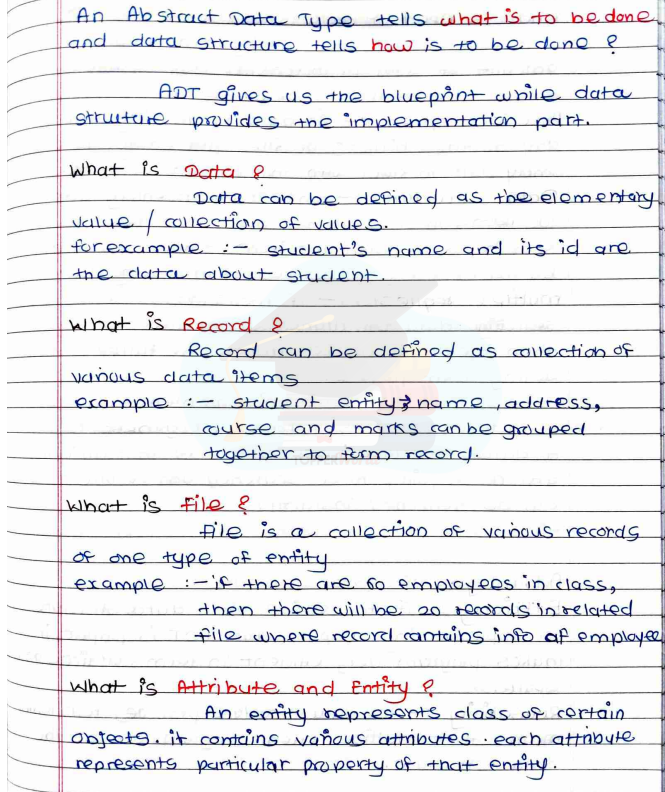 An Abstract Data Type tells what is to be done
and data structure tells how is to be done ?
ADT gives us the blueprint while data
structure provides the implementation part.
What is Data ?
Data can be defined as the elementary
value / collection of values.
for example :- student's name and its id are
the data about student.
What is Record ?
Record can be defined as collection of
various data items
example :- student entity → name, address,
course and marks can be grouped
together to form record.
What is File ?
File is a collection of various records
of one type of entity
example :- if there are 60 employees in class,
then there will be 20 records in related
file where record contains info of employee
What is Attribute and Entity ?
An entity represents class of certain
objects. it contains various attributes. each attribute
represents particular property of that entity.